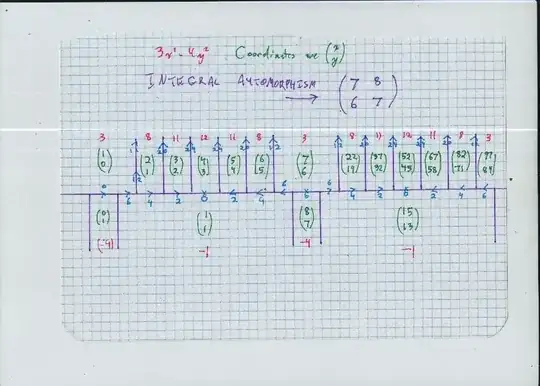 3x² - 4y² Coordinates are (x y)
INTEGRAL AUTOMORPHISM → (7 8 6 7)
3 8 11 12 11 8 3 8 11 12 11 8 3
(1 0) (2 1) (3 2) (4 3) (5 4) (6 5) (7 6) (22 19) (37 32) (52 45) (67 58) (82 71) (97 84)
6 4 2 0 2 4 6 6 4 2 0 2 4 6
(0 1) (1 1) (8 7) (15 13)
-4 -1 -4 -1